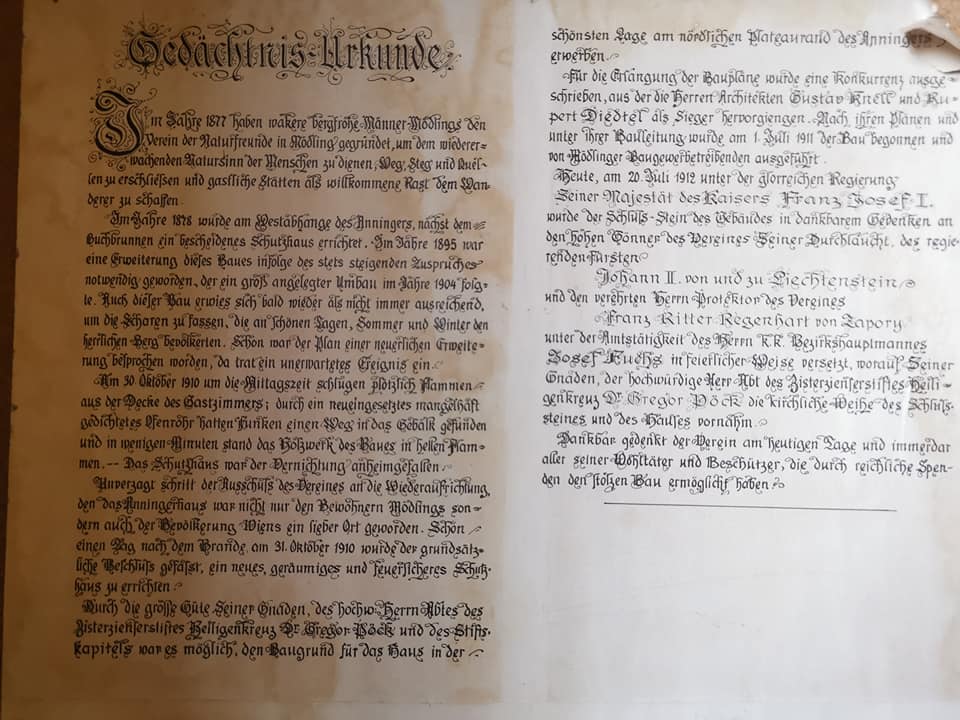 Gedächtnis-Urkunde.
Im Jahre 1877 haben wakere bergfrohe Männer Mödlings den
Verein der Naturfreunde in Mödling gegründet, um dem wiederer-
wachenden Natursinn der Menschen zu dienen, Weg, Steg und Quel-
len zu erschliessen und gastliche Stätten als willkommene Rast dem Wan-
derer zu schaffen.
Im Jahre 1878 wurde am Westabhange des Anningers, nächst dem
Buchbrunnen ein bescheidenes Schutzhaus errichtet. Im Jahre 1895 war
eine Erweiterung dieses Baues infolge des stets steigenden Zuspruches
notwendig geworden, der ein groß angelegter Umbau im Jahre 1904 folg-
te. Auch dieser Bau erwies sich bald wieder als nicht immer ausreichend,
um die Scharen zu fassen, die an schönen Tagen, Sommer und Winter den
herrlichen Berg bevölkerten. Schon war der Plan einer neuerlichen Erweite-
rung besprochen worden, da trat ein unerwartetes Ereignis ein.
Am 30. Oktober 1910 um die Mittagszeit schlugen plötzlich Flammen
aus der Decke des Gastzimmers; durch ein neueingesetztes mangelhaft
gedichtetes Ofenrohr hatten Funken einen Weg in das Gebälk gefunden
und in wenigen Minuten stand das Holzwerk des Baues in hellen Flam-
men. -- Das Schutzhaus war der Vernichtung anheimgefallen.
Unverzagt schritt der Ausschuss des Vereines an die Wiederaufrichtung,
den das Anningerhaus war nicht nur den Bewohnern Mödlings son-
dern auch der Bevölkerung Wiens ein lieber Ort geworden. Schon
einen Tag nach dem Brande, am 31. Oktober 1910 wurde der grundsätz-
liche Beschluss gefasst, ein neues, geräumiges und feuersicheres Schutz-
haus zu errichten.
Durch die große Güte Seiner Gnaden, des hochw. Herrn Abtes des
Zisterzienserstiftes Heiligenkreuz Dr. Gregor Pöck und des Stifts-
kapitels war es möglich, den Baugrund für das Haus in der
schönsten Lage am nördlichen Plateaurand des Anningers
erwerben.
Für die Erlangung der Baupläne wurde eine Konkurrenz ausge-
schrieben, aus der die Herren Architekten Gustav Knell und Ru-
pert Diedtel als Sieger hervorgiengen. Nach ihren Plänen und
unter ihrer Bauleitung wurde am 1. Juli 1911 der Bau begonnen und
von Mödlinger Baugewerbetreibenden ausgeführt.
Heute, am 20. Juli 1912 unter der glorreichen Regierung
Seiner Majestät des Kaisers Franz Josef I.
wurde der Schluss-Stein des Gebäudes in dankbarem Gedenken an
den hohen Gönner des Vereines Seiner Durchlaucht, des regie-
renden Fürsten
Johann II. von und zu Liechtenstein
und den verehrten Herrn Protektor des Vereines
Franz Ritter Regenhart von Zapory
unter der Amtstätigkeit des Herrn k.k. Bezirkshauptmannes
Josef Fuchs in feierlicher Weise versetzt, worauf Seiner
Gnaden, der hochwürdige Herr Abt des Zisterzienserstiftes Heili-
genkreuz Dr. Gregor Pöck die kirchliche Weihe des Schluss-
steines und des Hauses vornahm.
Dankbar gedenkt der Verein am heutigen Tage und immerdar
aller seiner Wohltäter und Beschützer, die durch reichliche Spen-
den den stolzen Bau ermöglicht haben.